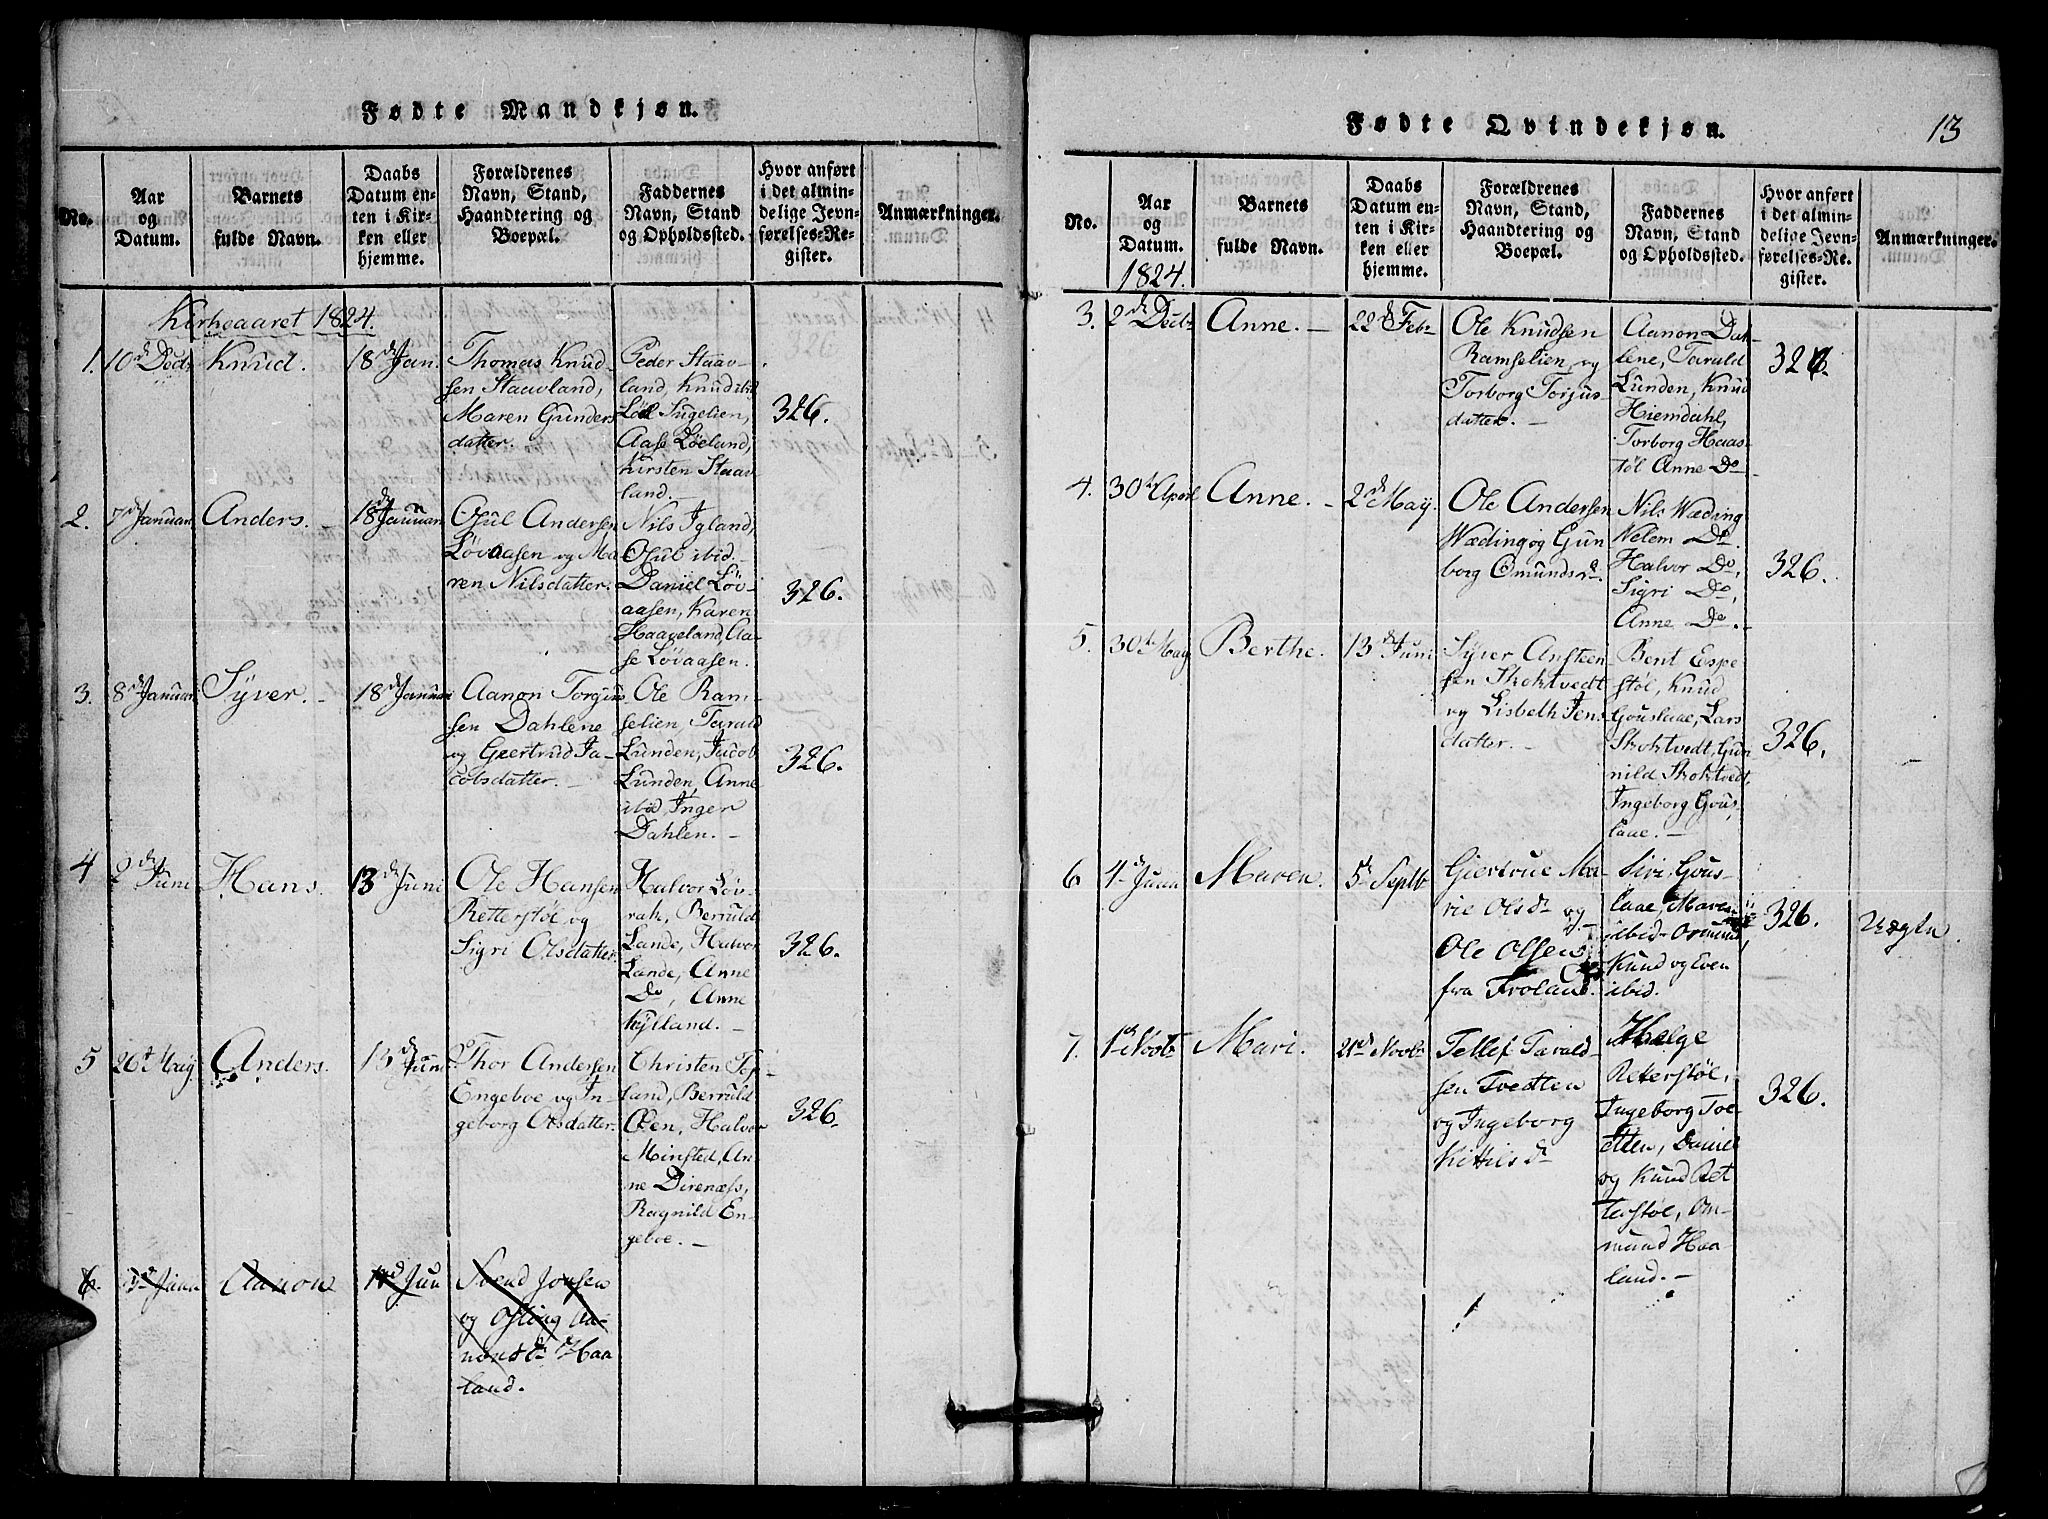 Fødte Mandkjøn.
No.
Aar
og
Datum.
Barnets
fulde Navn.
Daabs
Datum en-
ten i Kir-
ken eller
hjemme.
Forældrenes
Navn, Stand,
Haandtering og
Boepæl.
Faddernes
Navn, Stand
og Opholdssted.
Hvor anført
i det almin-
delige Jevn-
førelses-Re-
gister.
Anmærkninger.
Kirkeaaret 1824.
1.
10de Decbr
Knud.
18de Jan.
Thomas Knud-
sen Staavland,
Maren Gunders
datter.
Peder Staav-
land, Knud ibid
Aase Løeland,
Kirsten Staav
land.
326.
2.
7de Januari
Anders.
18de Januari
Osul Andersen
Løvaasen og Ma-
ren Nilsdatter.
Nils Igland,
Osul ibid
Daniel Løv-
aasen, Karen
Haaveland, Aa-
se Løvaasen.
326.
3.
8de Januari
Syver.
18de Januari
Aanon Torgius
sen Dahlene
og Geertrud Ja-
cobsdatter.
Ole Ram-
selien, Tarald
Lunden, Jacob
Lunden, Anne
ibid, Inger
Dahlen.
326.
4
2de Juni
Hans.
13de Juni
Ole Hansen
Retterstøl og
Sigri Olsdatter.
Halvor Løv-
rak, Berruld
Lande, Halvor
Lande, Anne
Do, Anne
Kylland.
326.
5
26de May
Anders.
13de Juni
Thor Andersen
Engeboe og In-
geborg Olsdatter.
Christen
land, Berruld
Øen, Halvor
Minsted, An-
ne Direnæss,
Ragnild En-
geboe.
326.
6.
Juni
Aanon
Jun
Svend Jonsen
og Aa-
nonsdr Haa
land.
Fødte Qvindekjøn.
13
No.
Aar
og
Datum.
1824.
Barnets
fulde Navn.
Daabs
Datum en-
ten i Kir-
ken eller
hjemme.
Forældrenes
Navn, Stand,
Haandtering og
Boepæl.
Faddernes
Navn, Stand
og Opholdssted.
Hvor anført
i det almin-
delige Jevn-
førelses-Re-
gister.
Anmærkninger.
3.
2de Decbr
Anne.
22de Febr
Ole Knudsen
Ramselien og
Torborg Torjus-
datter.
Aanon Dah-
lene, Tarald
Lunden, Knud
Hiemdahl,
Torborg Haas-
tøl Anne Do
326.
4.
30te April
Anne.
2de May
Ole Andersen
Wæding og Gun
borg Omundsdr.
Nils Wæding
Nelem Do.
Halvor Do,
Sigri Do,
Anne Do.
326.
5.
30te May
Berthe.
13de Juni
Syver Ansteen
sen Skoktvedt
og Lisbeth Jens
datter.
Bent Espe
støl, Knud
Gouslaae, Lars
Skoktvedt, Gun
nild Skoktvedt,
Ingeborg Gous-
laae.
326.
6
4de Juni
Maren.
5de Septb
Giertrue Ma-
rie Olsdr og
Ole Olsen
fra Froland.
Siri Gous-
laae, Maren
ibid Omund,
Knud og Even
ibid.
326.
Uægte.
7.
1de Novb
Mari.
21de Novbr
Tellef Tarald-
sen Tvedten
og Ingeborg
Kittilsdr
Helge
Reterstøl,
Ingeborg Tve-
etten, Daniel
og Knud Ret
terstøl, Om-
mund Haa
land.
326.